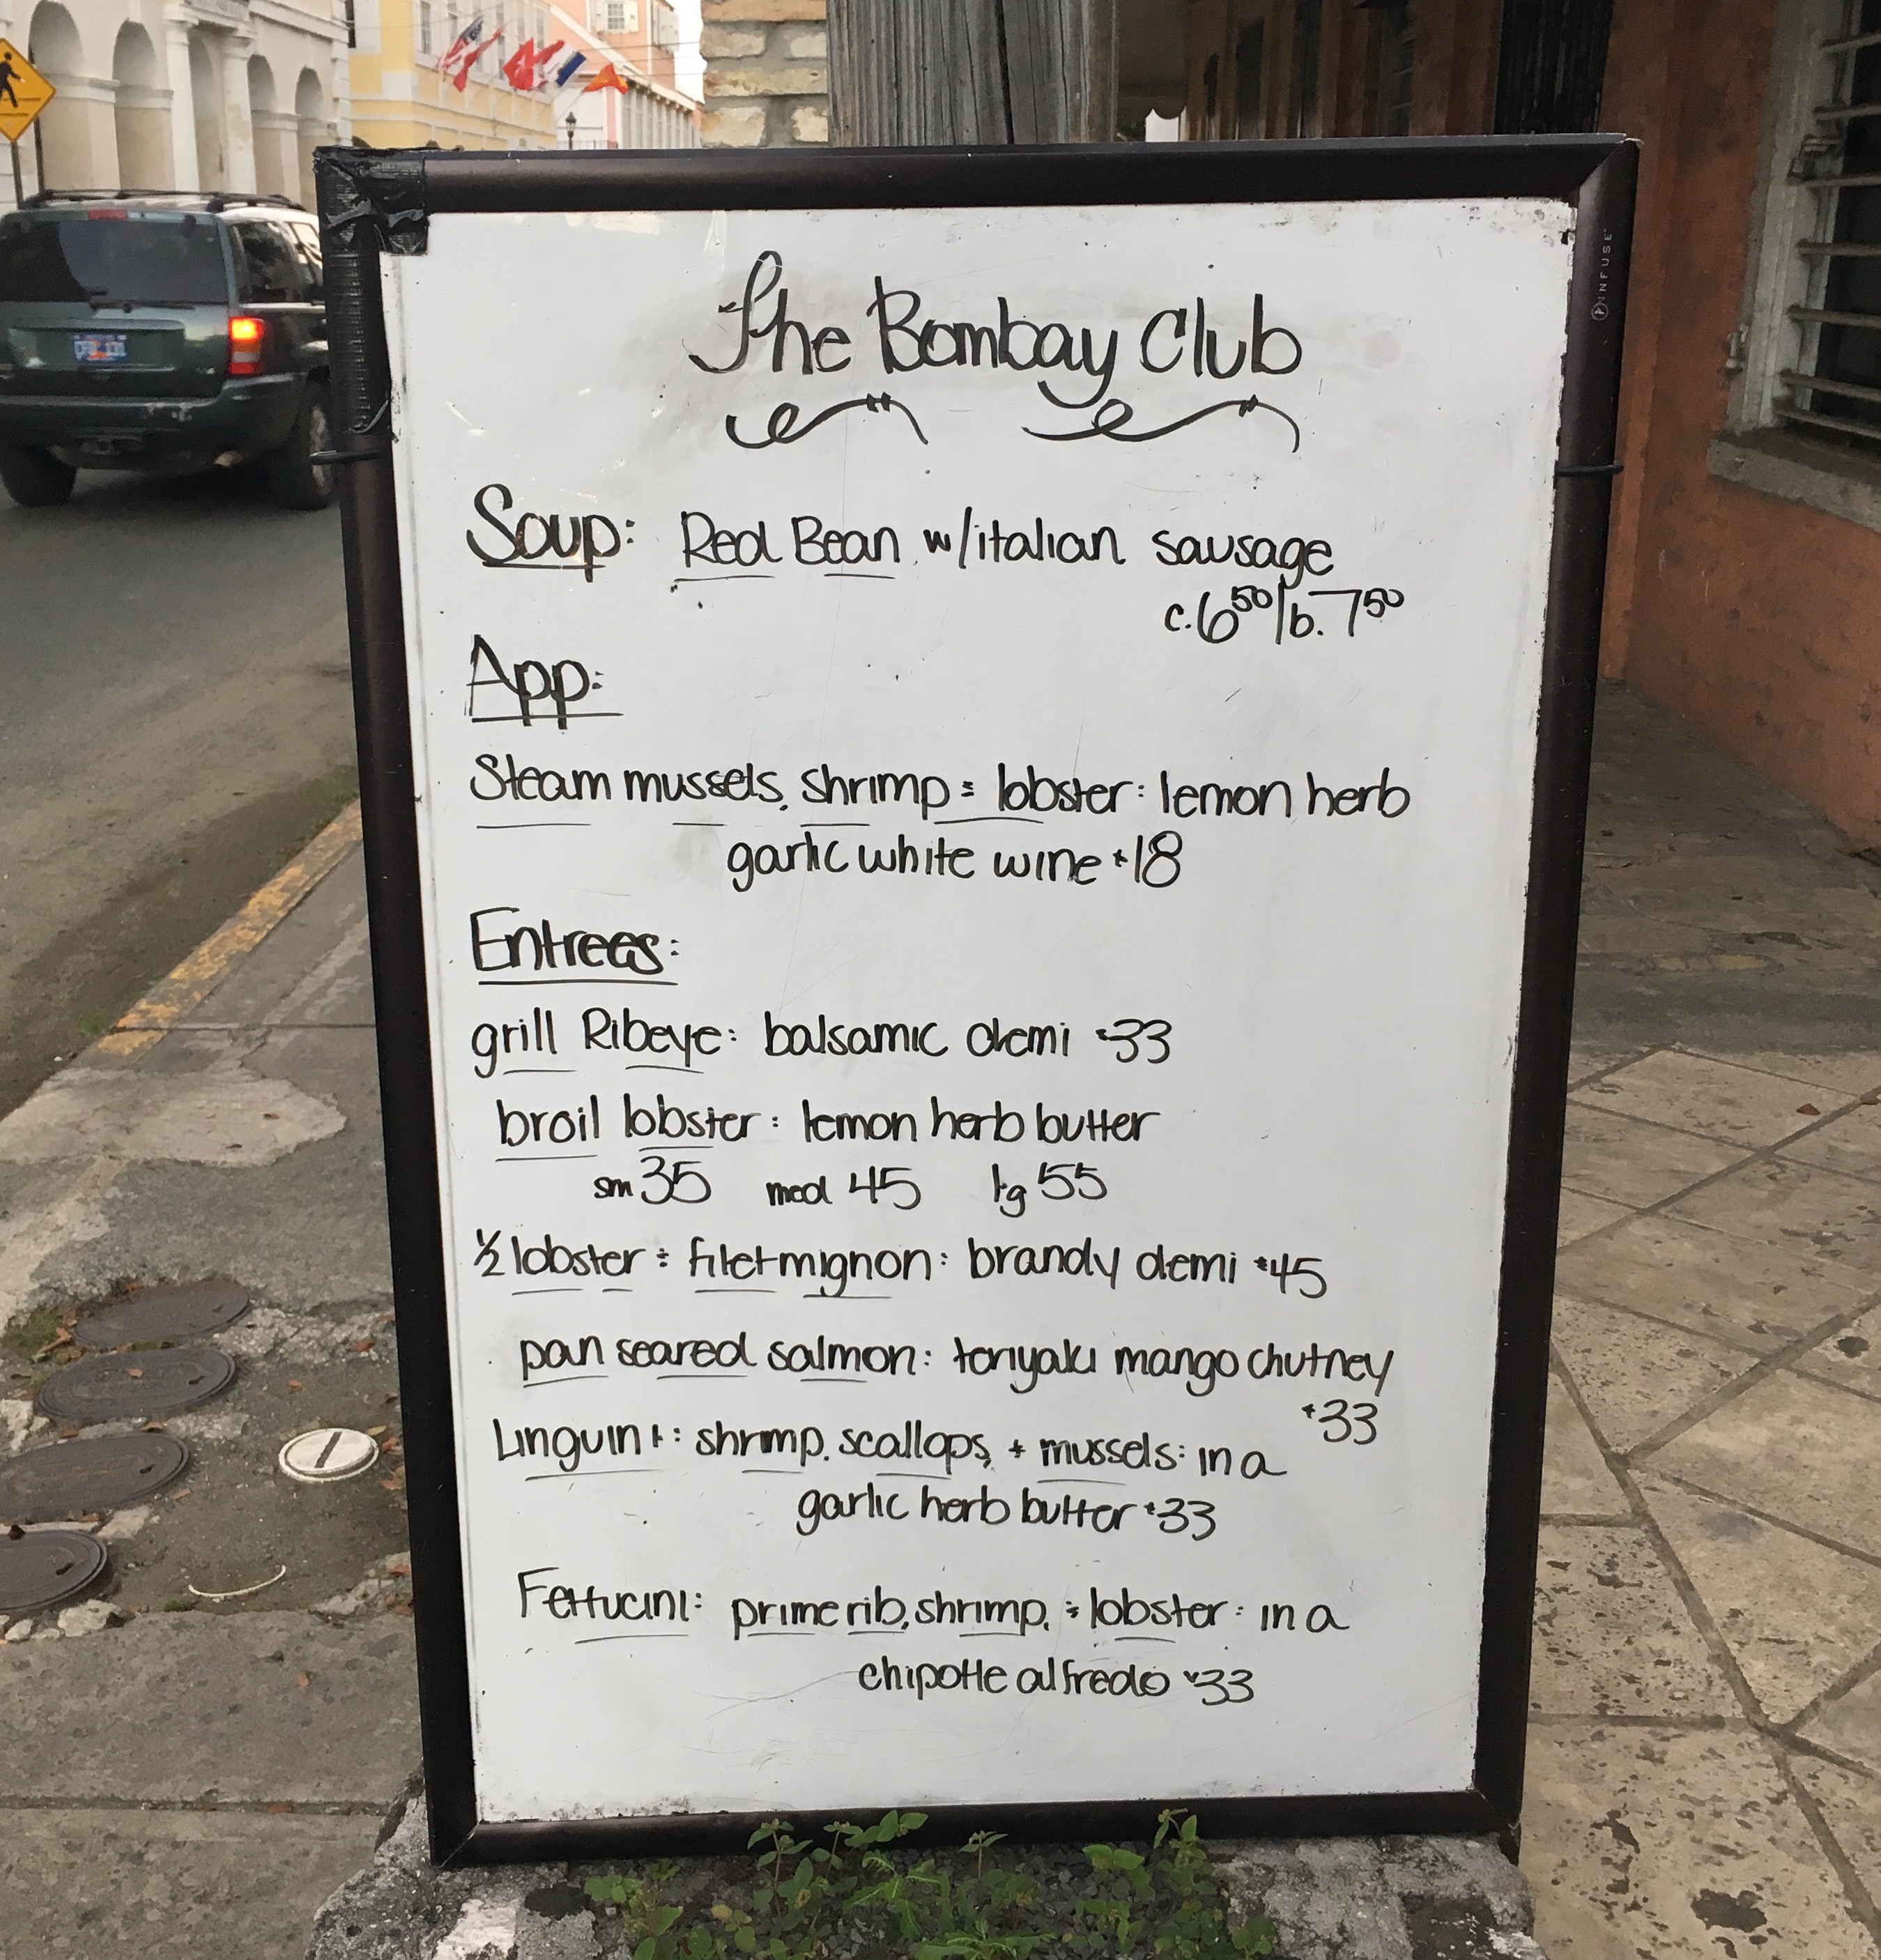 The Bombay Club
Soup: Red Bean w/italian sausage
c.6⁵⁰/b.7⁵⁰
App:
Steam mussels, shrimp & lobster: lemon herb
garlic white wine $18
Entrees:
grill Ribeye: balsamic demi $33
broil lobster: lemon herb butter
sm 35 med 45 lg 55
½ lobster & filet mignon: brandy demi $45
pan seared salmon: toriyaki mango chutney
$33
Linguini: shrimp, scallops, + mussels: in a
garlic herb butter $33
Fettucini: prime rib, shrimp, & lobster: in a
chipotle alfredo $33
INFUSE